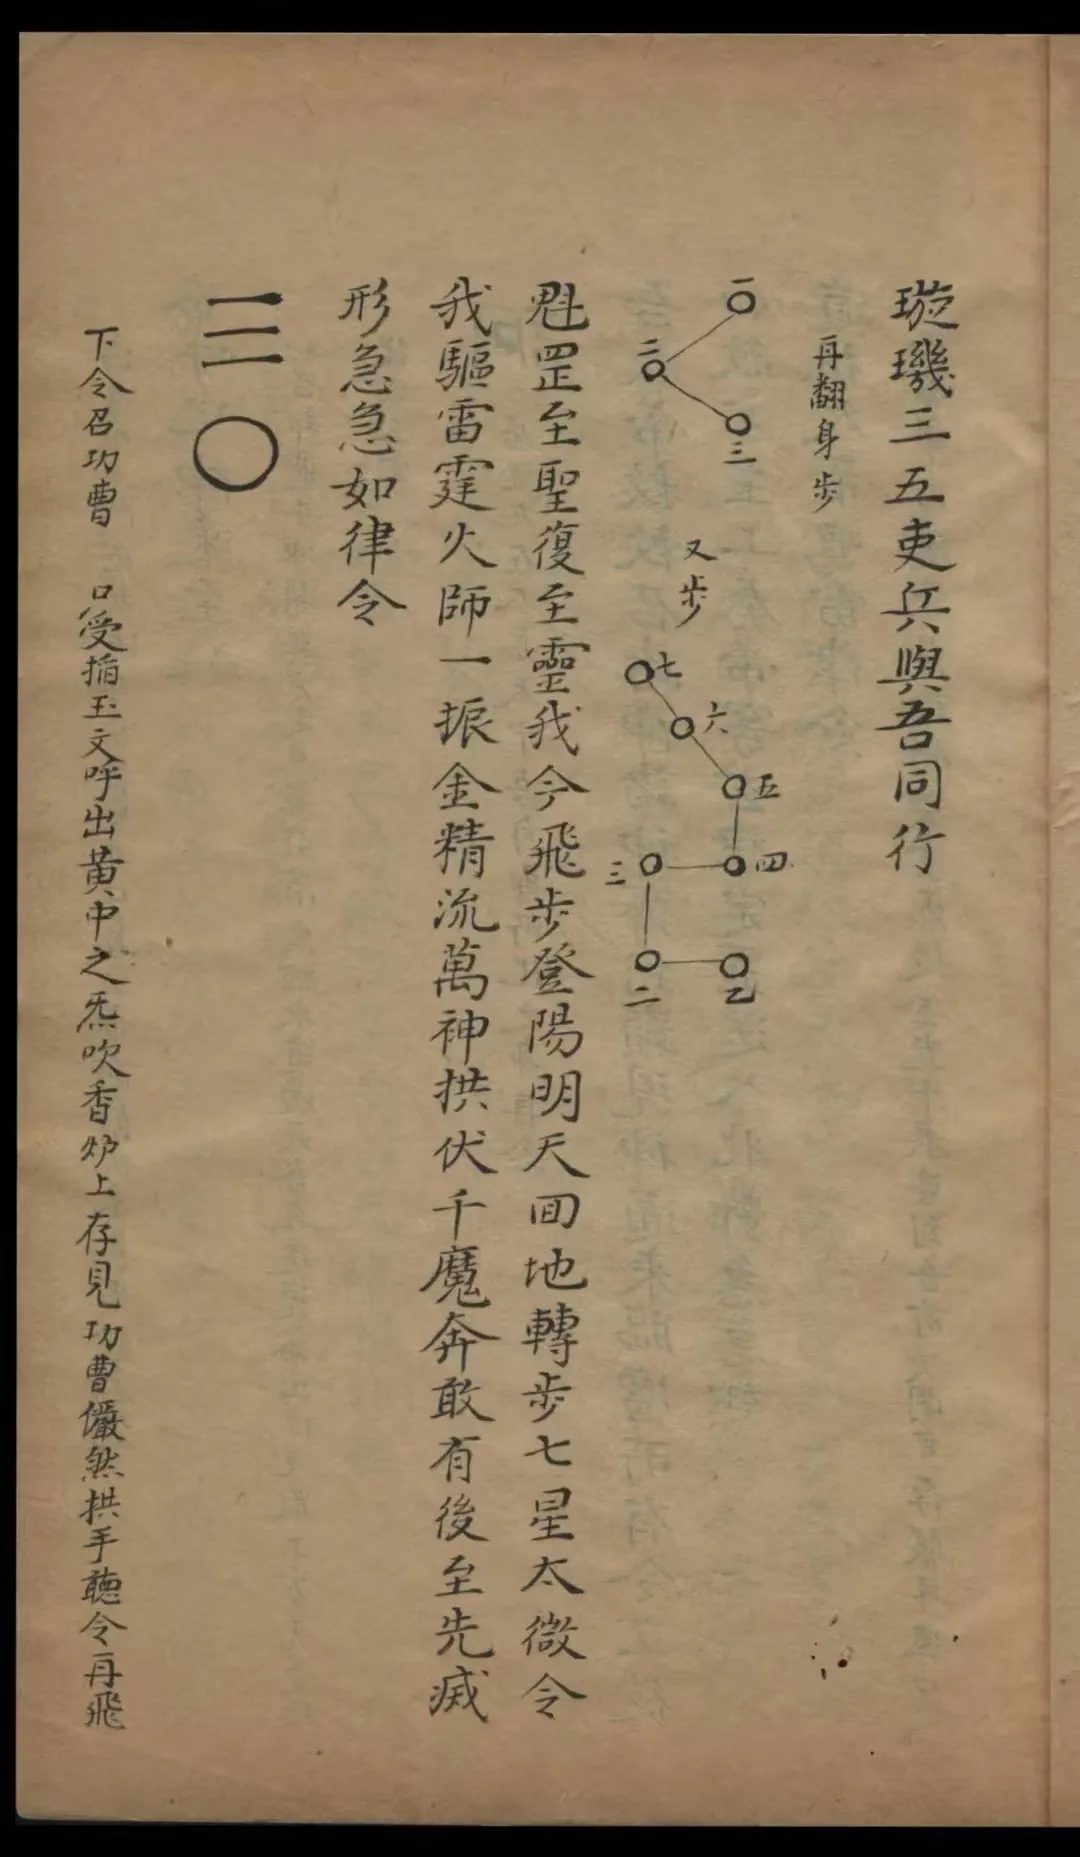 璇璣三五吏兵與吾同行
再翻身步
一
二
三
又步
七
六
五
四
三
二
乙
魁罡至聖復至靈我今飛步登陽明天回地轉步七星太微令
我驅雷霆火師一振金精流萬神拱伏千魔奔敢有後至先滅
形急急如律令
三〇
下令召功曹 口受指玉文呼出黄中之炁吹香炉上存見功曹儼然拱手聽令再飛